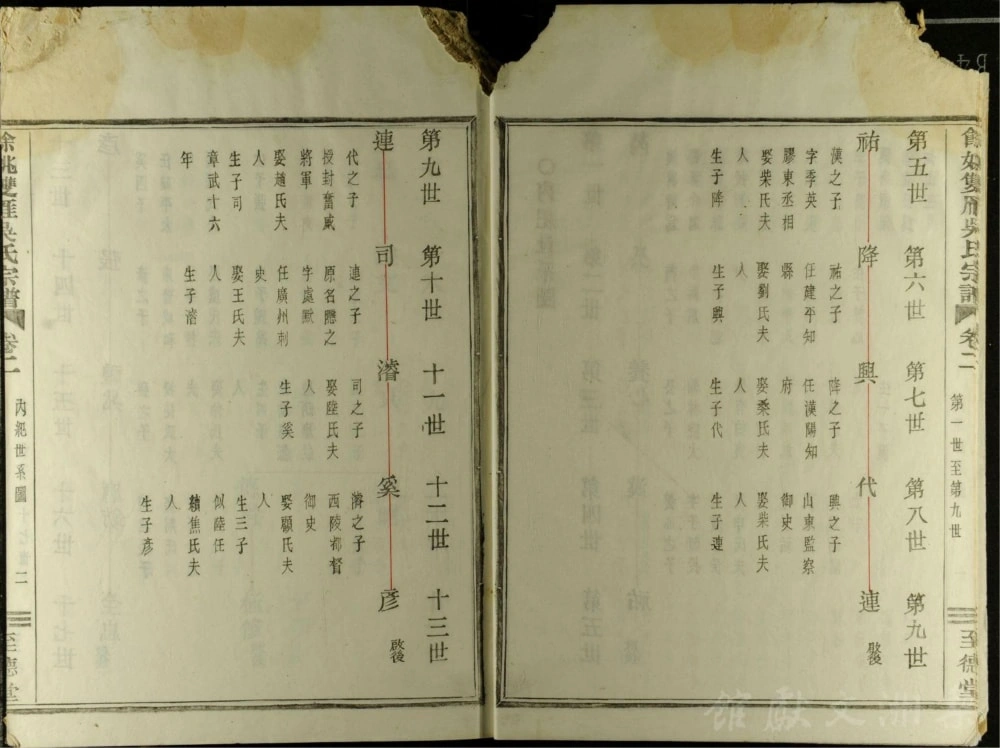 餘姚雙雁吳氏宗譜
卷二
第一世至第九世
至德堂
第五世
第六世
第七世
第八世
第九世
祐
降
興
代
連
啟後
漢之子
字季英
膠東丞相
娶柴氏夫
人
生子降
祐之子
任建平知
縣
娶劉氏夫
人
生子興
降之子
任漢陽知
府
娶桑氏夫
人
生子代
興之子
山東監察
御史
娶柴氏夫
人
生子連
第九世
第十世
十一世
十二世
十三世
連
司
濬
奚
彥
啟後
代之子
授封奮威
將軍
娶趙氏夫
人
生子司
章武十六
年
連之子
原名
字處默
任廣州刺
史
娶王氏夫
人
生子濬
司之子
娶陸氏夫
人
生子奚
濬之子
西陵都督
御史
娶顧氏夫
人
生三子
似陸任
續焦氏夫
人
生子彥
餘姚雙雁吳氏宗譜
卷二
內紀世系圖
二
至德堂
文獻館
B4